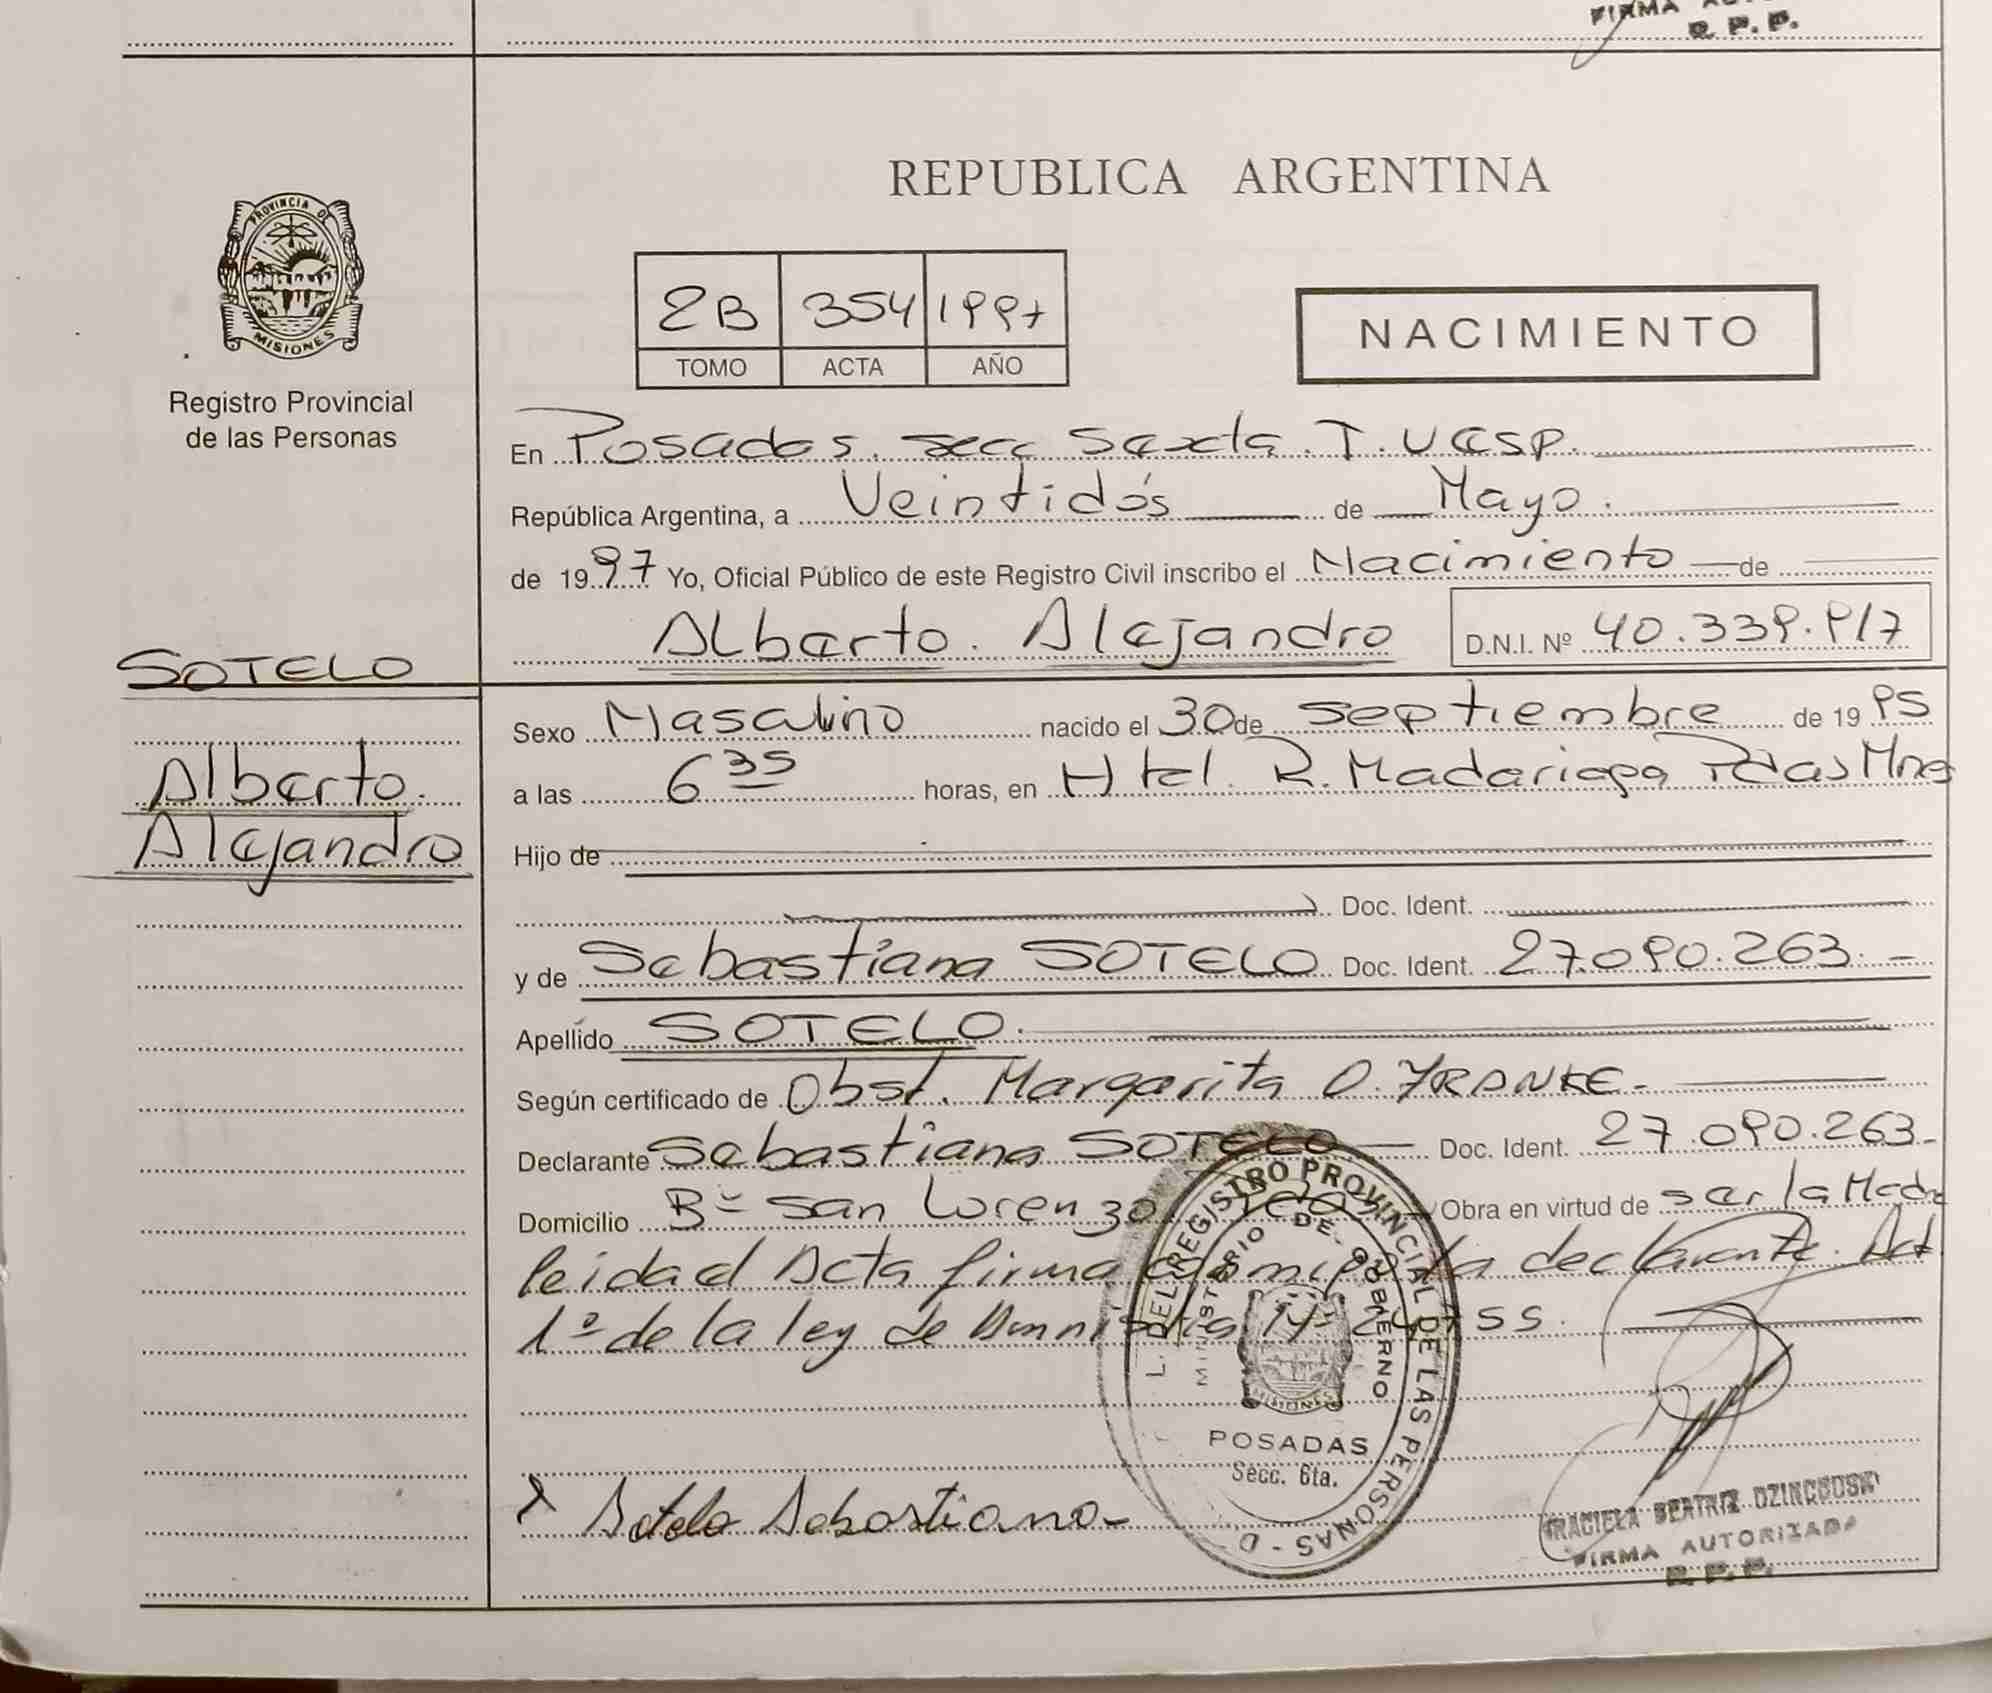 FIRMA
R. P. P.
PROVINCIA DE
MISIONES
Registro Provincial
de las Personas
REPUBLICA ARGENTINA
2B 354 1997
TOMO ACTA AÑO
NACIMIENTO
En Posadas. secc Sexta. T. U
República Argentina, a Veintidós de Mayo.
de 1997 Yo, Oficial Público de este Registro Civil inscribo el Nacimiento de
Alberto. Alejandro D.N.I. Nº 40.339.917
SOTELO
Alberto.
Alejandro
Sexo Masculino nacido el 30 de septiembre de 1995
a las 6 35 horas, en Htal. R. Madariaga Pdas Mnes
Hijo de
Doc. Ident.
y de Sebastiana SOTELO Doc. Ident. 27.090.263.-
Apellido SOTELO.
Según certificado de Obst. Margarita O. FRANKE-
Declarante Sebastiana SOTELO - Doc. Ident. 27.090.263-
Domicilio Bº San Lorenzo Obra en virtud de ser la Madre
leida el Acta firma conmigo la declarante. Art
1º de la ley de Amnistia Nº
L. DEL REGISTRO PROVINCIAL DE LAS PERSONAS - D
MINISTERIO DE GOBIERNO
MISIONES
POSADAS
Secc. 6ta.
x Sotelo Sebastiana-
GRACIELA BEATRIZ
FIRMA AUTORIZADA
R. P. P.